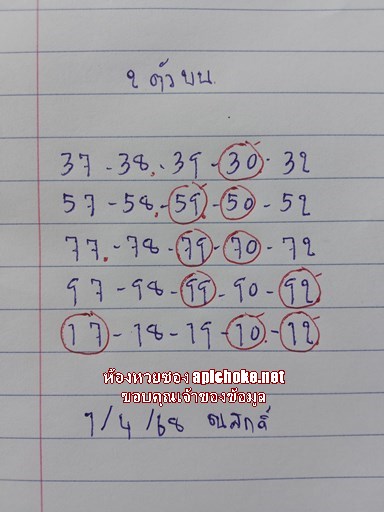 2 ตัวบน
37 - 38 - 39 - 30 - 32
57 - 58 - 59 - 50 - 52
77 - 78 - 79 - 70 - 72
97 - 98 - 99 - 90 - 92
17 - 18 - 19 - 10 - 12
ห้องหวยซอง apichoke.net
ขอบคุณเจ้าของข้อมูล
1/4/68